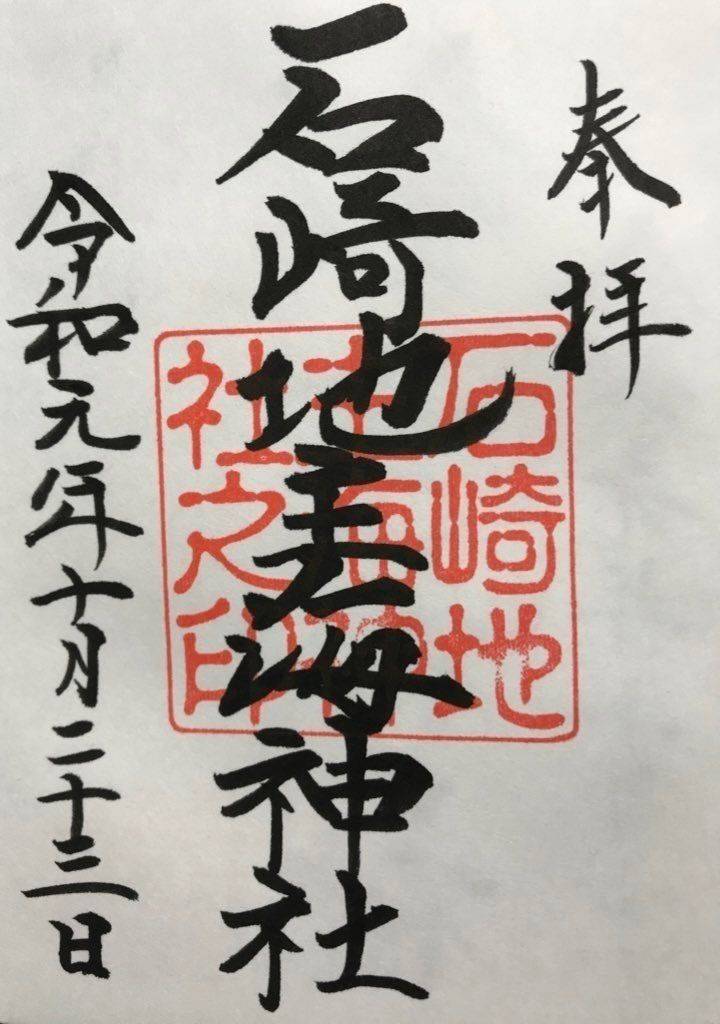 奉拝
石崎地主海神社
令和元年十月二十三日
石崎地
主海神
社之印